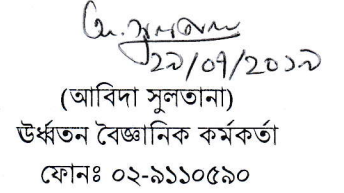 ২৯/০৭/২০১৯
(আবিদা সুলতানা)
ঊর্ধ্বতন বৈজ্ঞানিক কর্মকর্তা
ফোনঃ ০২-৯১১০৫৯০